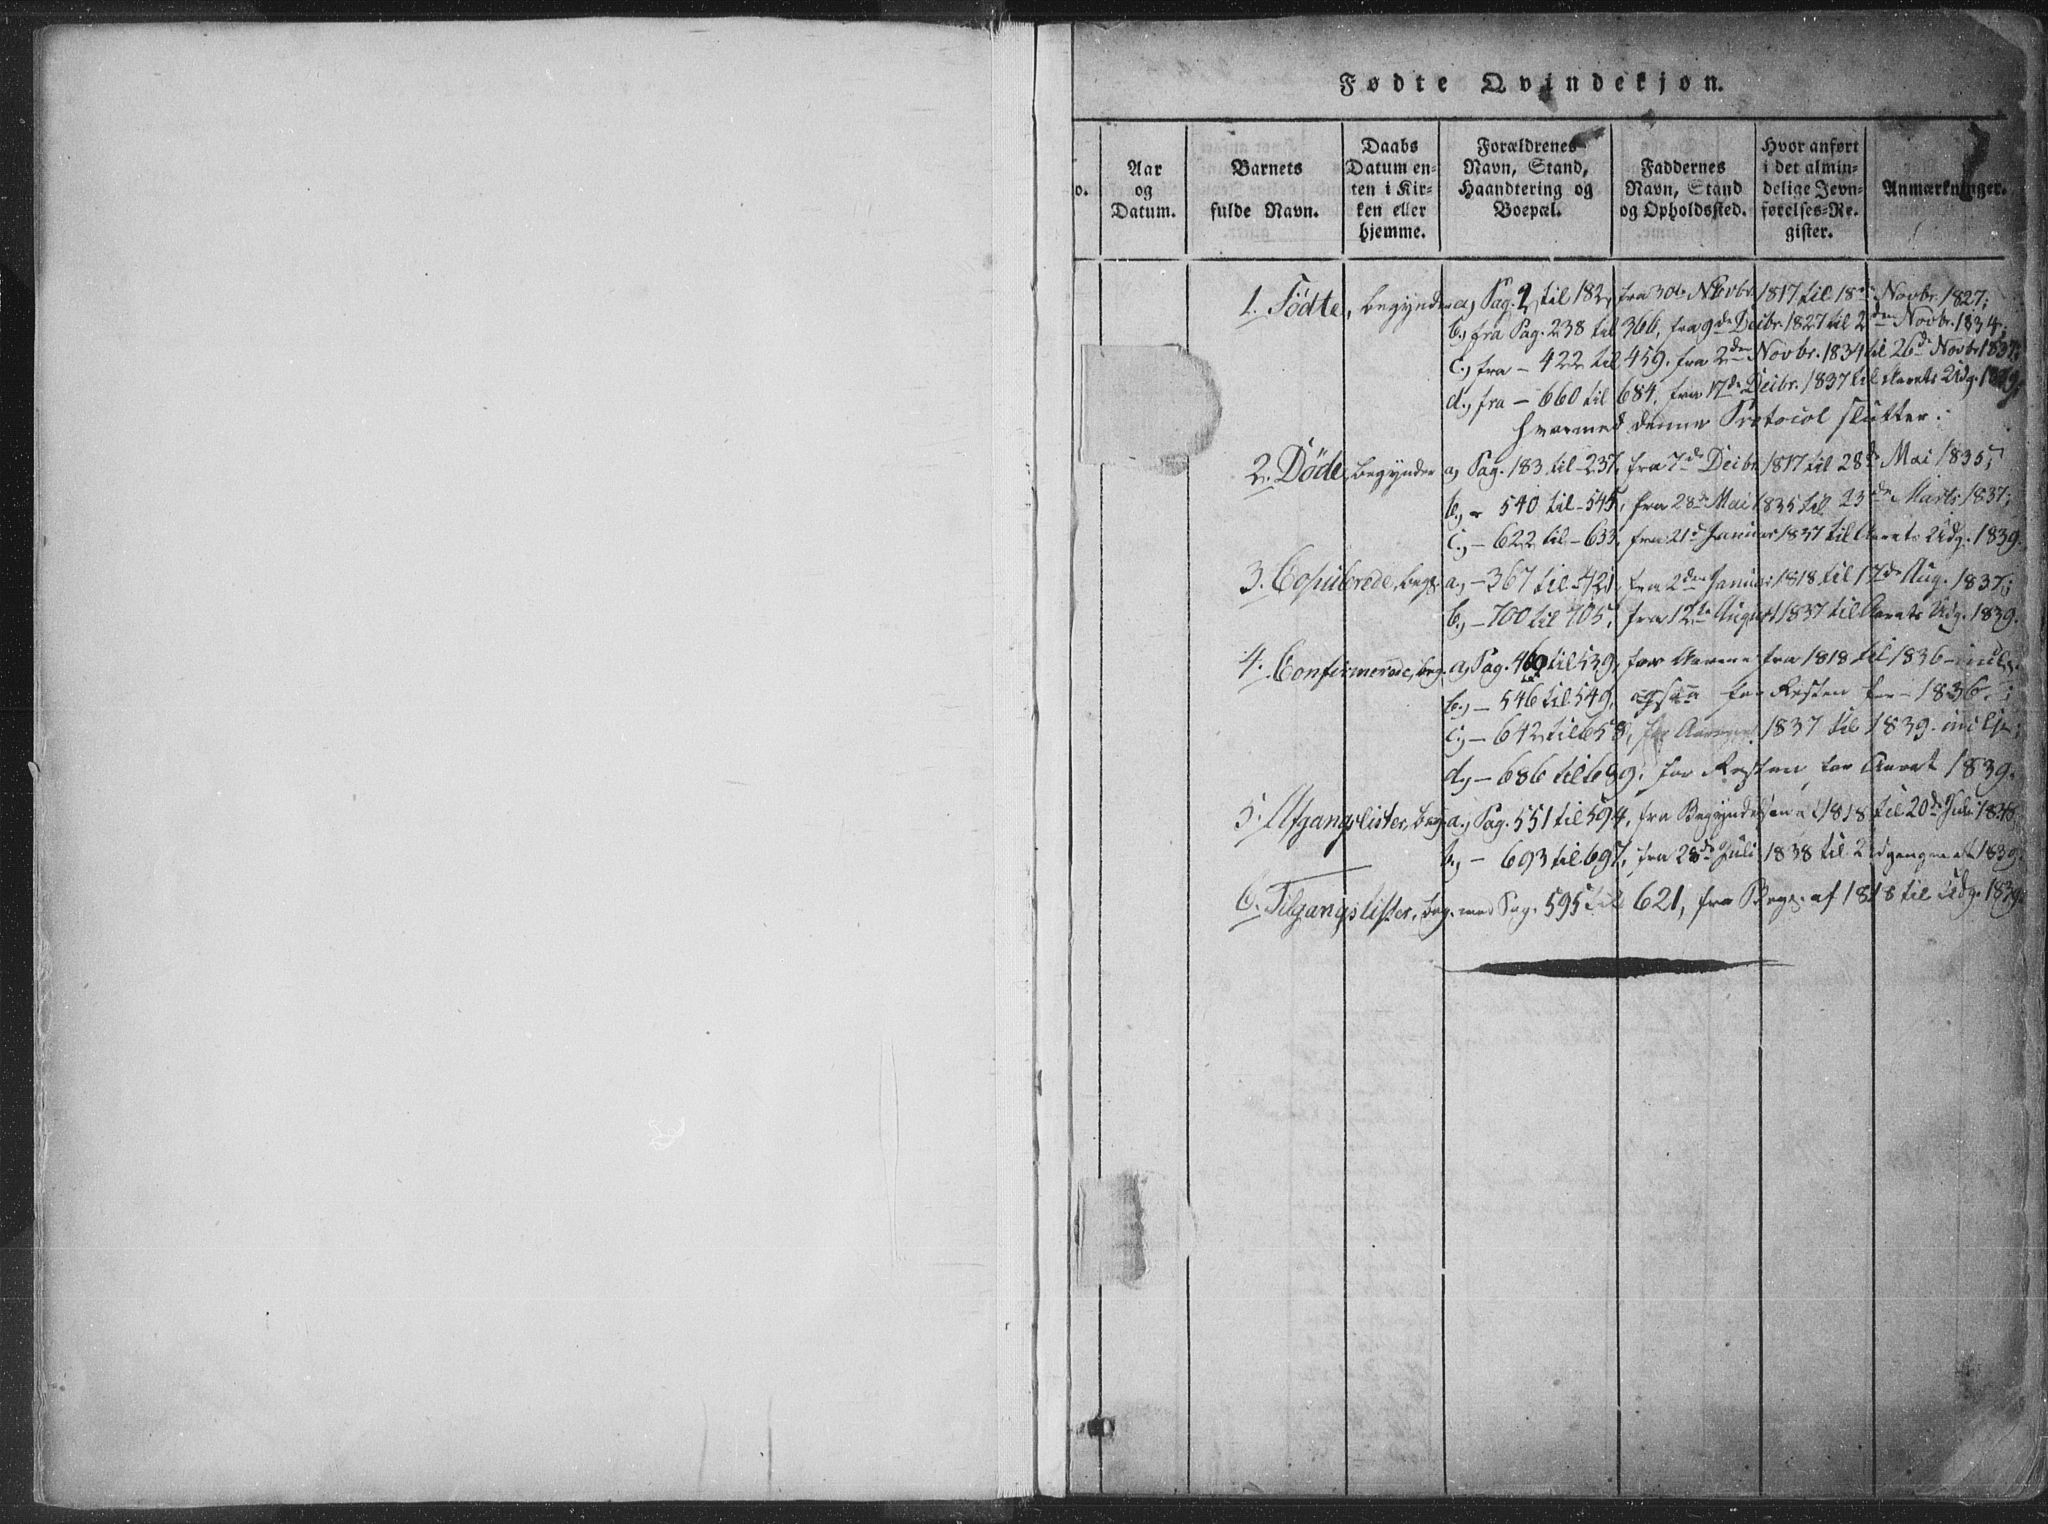 Fødte Qvindekjøn.
o. | Aar og Datum. | Barnets fulde Navn. | Daabs Datum enten i Kirken eller hjemme. | Forældrenes Navn, Stand, Haandtering og Boepæl. | Faddernes Navn, Stand og Opholdssted. | Hvor anført i det almindelige Jevnførelses-Register. | Anmærkninger.
1. Födte, begynder a, Pag. 2 til 182, fra 30te Novbr. 1817 til 18de Novbr. 1827;
b., fra Pag. 238 til 366, fra 9de Decbr. 1827 til 2den Novbr. 1834;
c., fra — 422 til 459. fra 2den Novbr. 1834 til 26de Novbr 1837;
d., fra — 660 til 684, fra 17de Decbr. 1837 til Aarets Udg. 1839,
hvormed denne Protocol slutter.
2. Döde, begynder a, Pag. 183 til 237, fra 7de Decbr 1817 til 28de Mai 1835;
b., — 540 til 545, fra 28de Mai 1835 til 23de Marts 1837;
c., — 622 til — 633, fra 21de Januar 1837 til Aarets Udg. 1839.
3. Copulerede, beg. a., — 367 til 421, fra 2den Januar 1818 til 17de Aug. 1837;
b., — 700 til 705, fra 12te August 1837 til Aarets Udg. 1839.
4. Confirmerede, beg. a, Pag. 460 til 539, for Aarene fra 1818 til 1836
b., — 546 til 549, ogsaa for Resten for 1836;
c., — 642 til 658, for Aarene 1837 til 1839
d, — 686 til 689. for Resten for Aaret 1839.
5. Afgangslister, beg. a., Pag. 551 til 594, fra Begyndelsen 1818 til 20de Juli 1838,
b., — 693 til 697, fra 28de Juli 1838 til Udgangen af 1839.
6. Tilgangslister, beg. med Pag. 595 til 621, fra Beg. af 1818 til Udg. 1839.